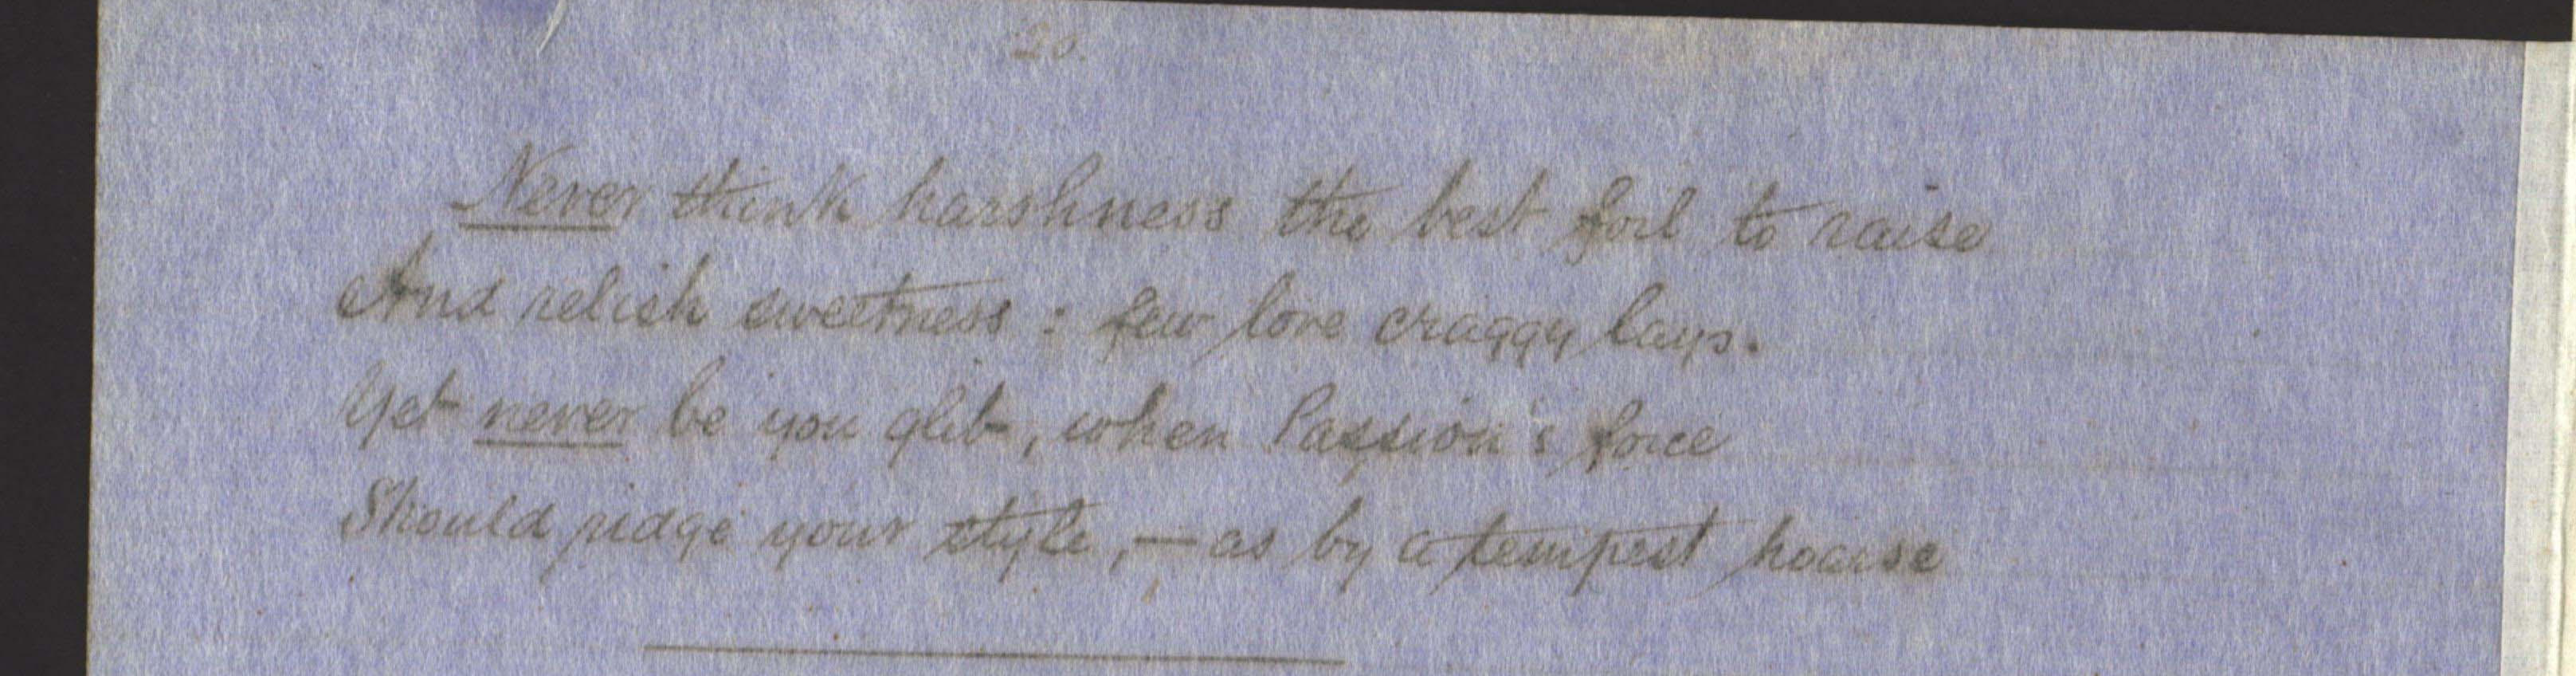 20.
Never think harshness the best foil to raise
And relish sweetness : few love craggy lays.
Yet never be you glib, when Passion's force
Should ridge your style, — as by a tempest hoarse